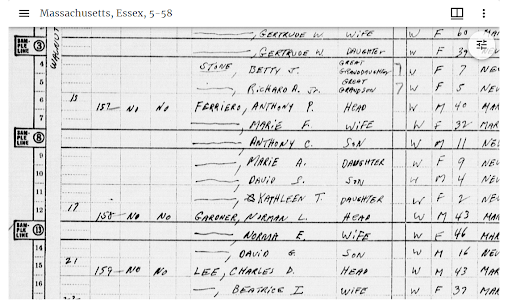 Massachusetts, Essex, 5-58
——, GERTRUDE W. WIFE W F 60 MAR
SAMPLE LINE 3 ——, GERTRUDE W. DAUGHTER W F 39
4 STONE, BETTY J. GREAT GRANDDAUGHTER 7 W F 7 NEV
5 ——, RICHARD A. Jr. GREAT GRANDSON 7 W F 5 NEV
6 13 157 — NO NO FERRIERO, ANTHONY P. HEAD W M 40 MAR
7 ——, MARIE F. WIFE W F 32 MAR
SAMPLE LINE 8 ——, ANTHONY C. SON W M 11 NEV
9 ——, MARIE A. DAUGHTER W F 9 NEV
10 ——, DAVID S. SON W M 4 NEV
11 ——, KATHLEEN T. DAUGHTER W F 2 NEV
12 17 158 — NO NO GARDNER, NORMAN L. HEAD W M 43 MAR
SAMPLE LINE 13 ——, NORMA E. WIFE W F 46 MAR
14 ——, DAVID G SON W M 16 NEV
15 21 159 — NO NO LEE, CHARLES D. HEAD W M 43 MAR
16 ——, BEATRICE I WIFE W F 37 MAR
WALNUT